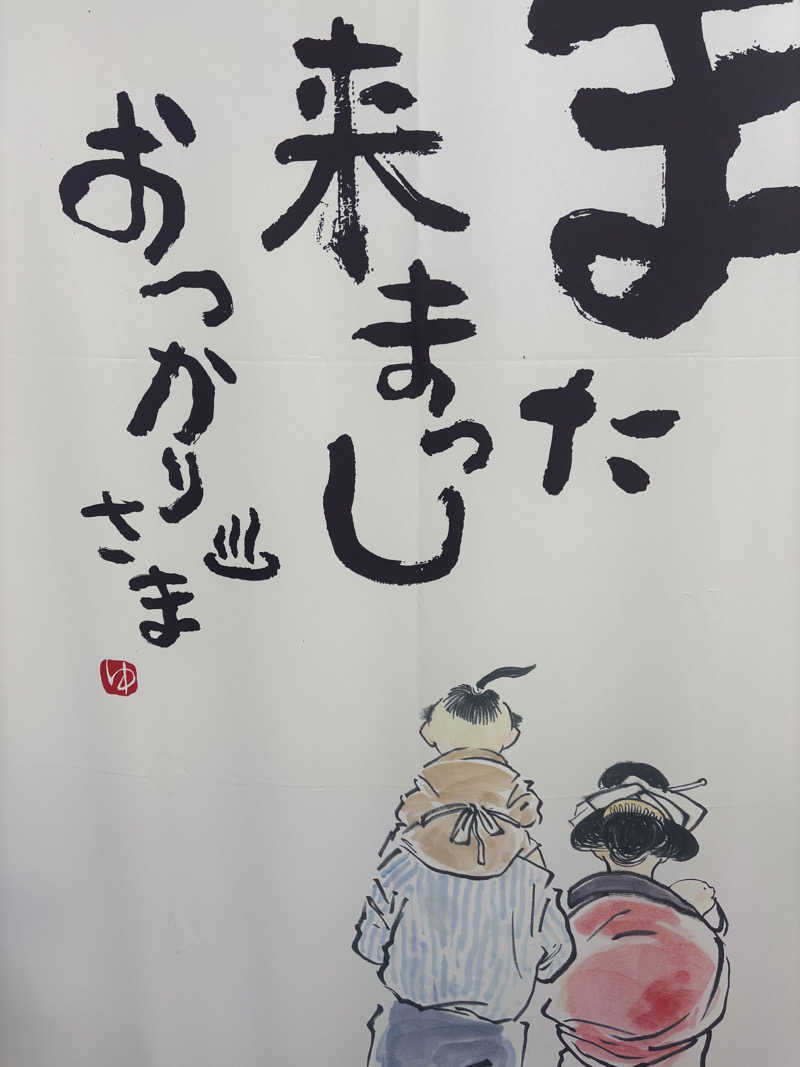 また
来まっし
おつかりさま♨
ゆ